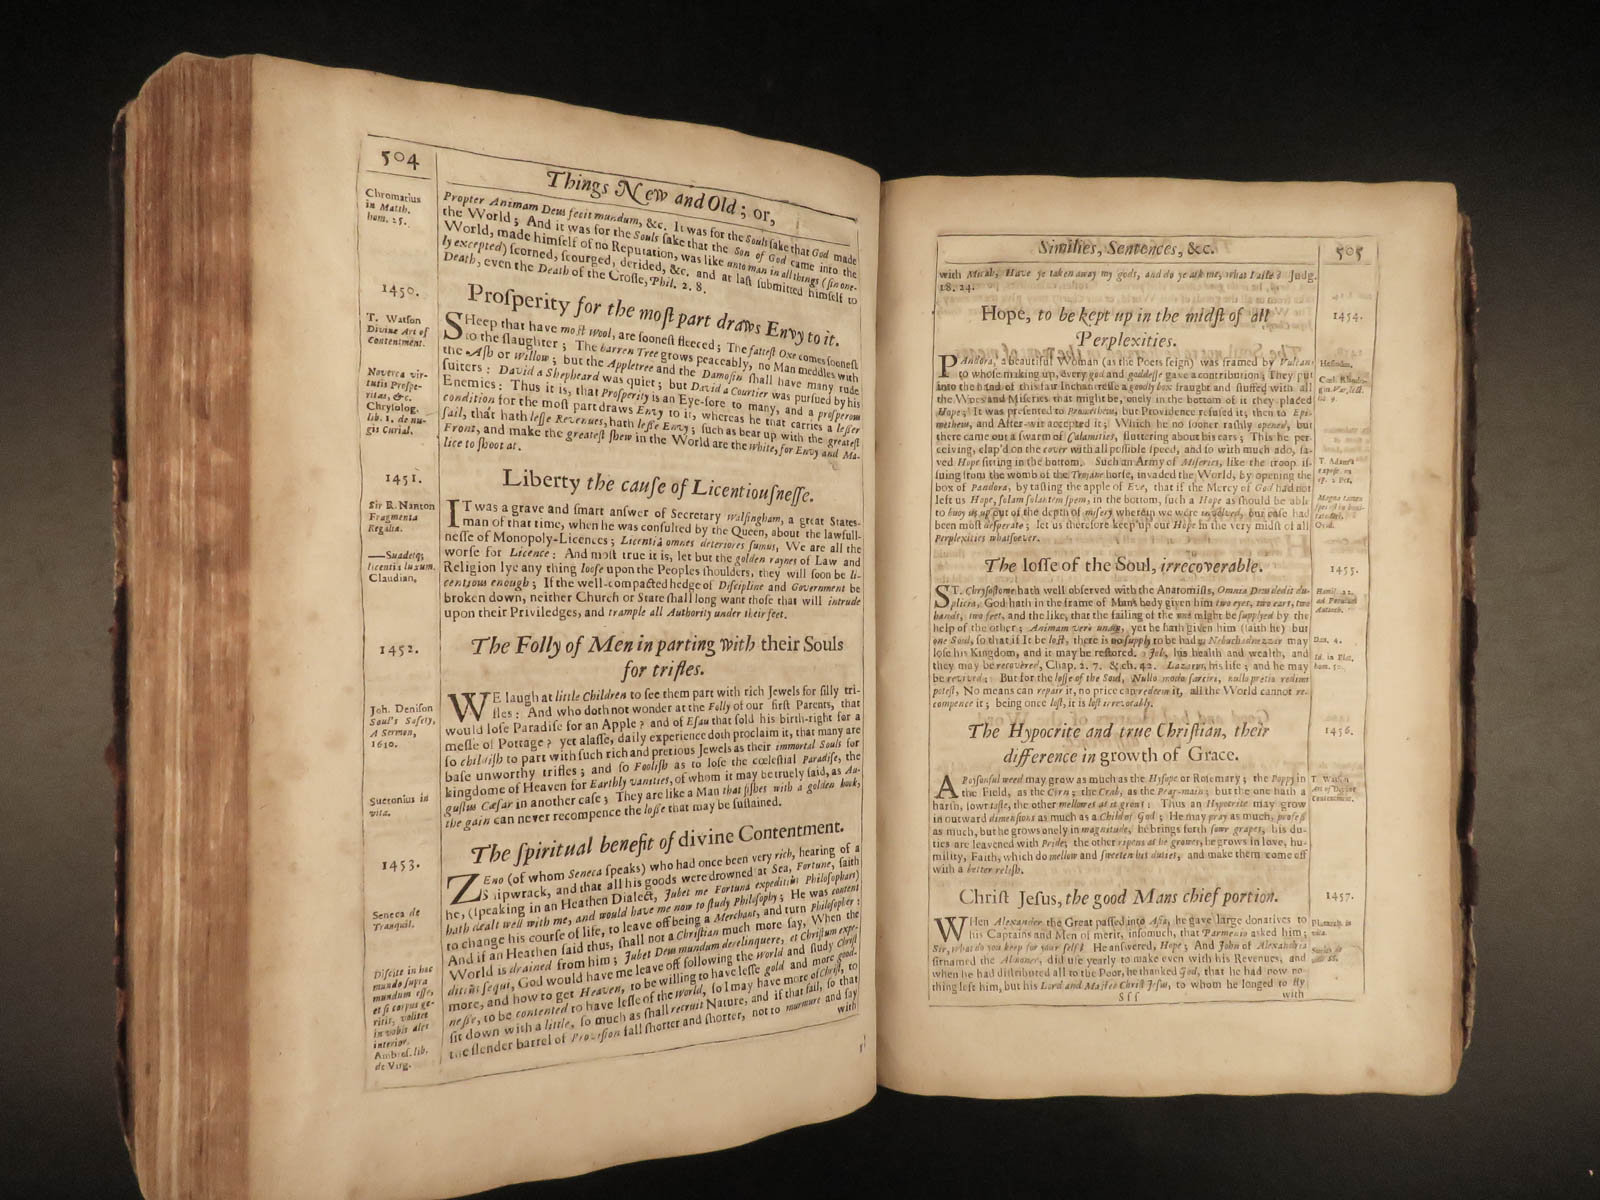 504
Things New and Old; or,
Chromatius
in Matth.
hom. 25.
Propter Animam Deus fecit mundum, &c. It was for the Souls ſake that God made
the World; And it was for the Souls ſake that the Son of God came into the
World, made himſelf of no Reputation, was like unto man in all things (ſin one-
ly excepted) ſcorned, ſcourged, derided, &c. and at laſt ſubmitted himſelf to
Death, even the Death of the Croſſe, Phil. 2. 8.
1450.
Proſperity for the moſt part draws Envy to it.
T. Watſon
Divine Art of
Contentment.
Noverca vir-
tutis Proſpe-
ritas, &c.
Chryſolog.
lib. 1. de nu-
gis Curial.
SHeep that have moſt wool, are ſooneſt fleeced; The fatteſt Oxe comes ſooneſt
to the ſlaughter; The barren Tree grows peaceably, no Man meddles with
the Aſh or Willow; but the Appletree and the Damoſin ſhall have many rude
ſuiters: David a Shepheard was quiet; but David a Courtier was purſued by his
Enemies: Thus it is, that Proſperity is an Eye-ſore to many, and a proſperous
condition for the moſt part draws Envy to it, whereas he that carries a leſſer
ſail, that hath leſſe Revenues, hath leſſe Envy; ſuch as bear up with the greateſt
Front, and make the greateſt ſhew in the World are the white, for Envy and Ma-
lice to ſhoot at.
1451.
Liberty the cauſe of Licentiouſneſſe.
Sir R. Nanton
Fragmenta
Regalia.
—Suadetq;
licentia luxum.
Claudian,
IT was a grave and ſmart anſwer of Secretary Walſingham, a great States-
man of that time, when he was conſulted by the Queen, about the lawfull-
neſſe of Monopoly-Licences; Licentiâ omnes deteriores ſumus, We are all the
worſe for Licence: And moſt true it is, let but the golden raynes of Law and
Religion lye any thing looſe upon the Peoples ſhoulders, they will ſoon be li-
centious enough; If the well-compacted hedge of Diſcipline and Government be
broken down, neither Church or State ſhall long want thoſe that will intrude
upon their Priviledges, and trample all Authority under their feet.
1452.
The Folly of Men in parting with their Souls
for trifles.
Joh. Deniſon
Soul's Safety,
A Sermon,
1610.
Suetonius in
vita.
WE laugh at little Children to ſee them part with rich Jewels for ſilly tri-
fles: And who doth not wonder at the Folly of our firſt Parents, that
would loſe Paradiſe for an Apple? and of Eſau that ſold his birth-right for a
meſſe of Pottage? yet alaſſe, daily experience doth proclaim it, that many are
ſo childiſh to part with ſuch rich and pretious Jewels as their immortal Souls for
baſe unworthy trifles; and ſo Fooliſh as to loſe the cœleſtial Paradiſe, the
kingdome of Heaven for Earthly vanities, of whom it may be truely ſaid, as Au-
guſtus Cæſar in another caſe; They are like a Man that fiſhes with a golden hook,
the gain can never recompence the loſſe that may be ſuſtained.
1453.
The ſpiritual benefit of divine Contentment.
Seneca de
Tranquil.
Diſcite in hoc
mundo ſupra
mundum eſſe,
et ſi corpus ge-
ritis, volitet
in vobis ales
interior.
Ambroſ. lib.
de Virg.
ZENO (of whom Seneca ſpeaks) who had once been very rich, hearing of a
Shipwrack, and that all his goods were drowned at Sea, Fortune, ſaith
he, (ſpeaking in an Heathen Dialect, Jubet me Fortuna expeditiùs Philoſophari)
hath dealt well with me, and would have me now to ſtudy Philoſophy; He was content
to change his courſe of life, to leave off being a Merchant, and turn Philoſopher:
And if an Heathen ſaid thus, ſhall not a Chriſtian much more ſay, When the
World is drained from him; Jubet Deus mundum derelinquere, et Chriſtum expe-
ditiùs ſequi, God would have me leave off following the world and ſtudy Chriſt
more, and how to get Heaven, to be willing to have leſſe gold and more good-
neſſe, to be contented to have leſſe of the world, ſo I may have more of Chriſt, to
ſit down with a little, ſo much as ſhall recruit Nature, and if that fail, ſo that
the ſlender barrel of Proviſion fall ſhorter and ſhorter, not to murmure and ſay
with
Similies, Sentences, &c.
505
with Micah, Have ye taken away my gods, and do ye ask me, what I aile? Judg.
18. 24.
1454.
Hope, to be kept up in the midſt of all
Perplexities.
Heſiodus,
T. Adams
Ovid.
PAndora, a beautiful Woman (as the Poets feign) was framed by Vulcan,
to whoſe making up, every god and goddeſſe gave a contribution; They put
into the hand of this fair Inchantreſſe a goodly box fraught and ſtuffed with all
the Woes and Miſeries that might be, onely in the bottom of it they placed
Hope; It was preſented to Prometheus, but Providence refuſed it, then to Epi-
metheus, and After-wit accepted it; Which he no ſooner raſhly opened, but
there came out a ſwarm of Calamities, fluttering about his ears; This he per-
ceiving, clap'd on the cover with all poſſible ſpeed, and ſo with much ado, ſa-
ved Hope ſitting in the bottom. Such an Army of Miſeries, like the troop iſ-
ſuing from the womb of the Trojane horſe, invaded the World, by opening the
box of Pandora, by taſting the apple of Eve, that if the Mercy of God had not
left us Hope, ſolam ſolantem ſpem, in the bottom, ſuch a Hope as ſhould be able
to buoy us up out of the depth of miſery wherein we were involved, our caſe had
been moſt deſperate; let us therefore keep up our Hope in the very midſt of all
Perplexities whatſoever.
1455.
The loſſe of the Soul, irrecoverable.
Dan. 4.
ST. Chryſoſtome hath well obſerved with the Anatomiſts, Omnia Deus dedit du-
plicia, God hath in the frame of Mans body given him two eyes, two ears, two
hands, two feet, and the like, that the failing of the one might be ſupplyed by the
help of the other; Animam verò unam, yet he hath given him (ſaith he) but
one Soul, ſo that if It be loſt, there is no ſupply to be had; Nebuchadnezzar may
loſe his Kingdom, and it may be reſtored. Job, his health and wealth, and
they may be recovered, Chap. 2. 7. & ch. 42. Lazarus, his life; and he may
be revived: But for the loſſe of the Soul, Nullo modo ſarciri, nullo pretio redimi
poteſt, No means can repair it, no price can redeem it, all the World cannot re-
compence it; being once loſt, it is loſt irrevocably.
1456.
The Hypocrite and true Chriſtian, their
difference in growth of Grace.
T. Watſon
Art of Divine
Contentment.
A Poyſonful weed may grow as much as the Hyſope or Roſemary; the Poppy in
the Field, as the Corn; the Crab, as the Pear-main; but the one hath a
harſh, ſowr taſte, the other mellowes as it grows: Thus an Hypocrite may grow
in outward dimenſions as much as a Child of God; He may pray as much, profeſs
as much, but he grows onely in magnitude, he brings forth ſowr grapes, his du-
ties are leavened with Pride; the other ripens as he growes, he grows in love, hu-
mility, Faith, which do mellow and ſweeten his duties, and make them come off
with a better reliſh.
1457.
Chriſt Jeſus, the good Mans chief portion.
Plutarch. in
vita.
WHen Alexander the Great paſſed into Aſia, he gave large donatives to
his Captains and Men of merit, inſomuch, that Parmenio asked him;
Sir, what do you keep for your ſelf? He anſwered, Hope; And John of Alexandria
ſirnamed the Almoner, did uſe yearly to make even with his Revenues, and
when he had diſtributed all to the Poor, he thanked God, that he had now no-
thing left him, but his Lord and Maſter Chriſt Jeſus, to whom he longed to fly
Sſſ
with